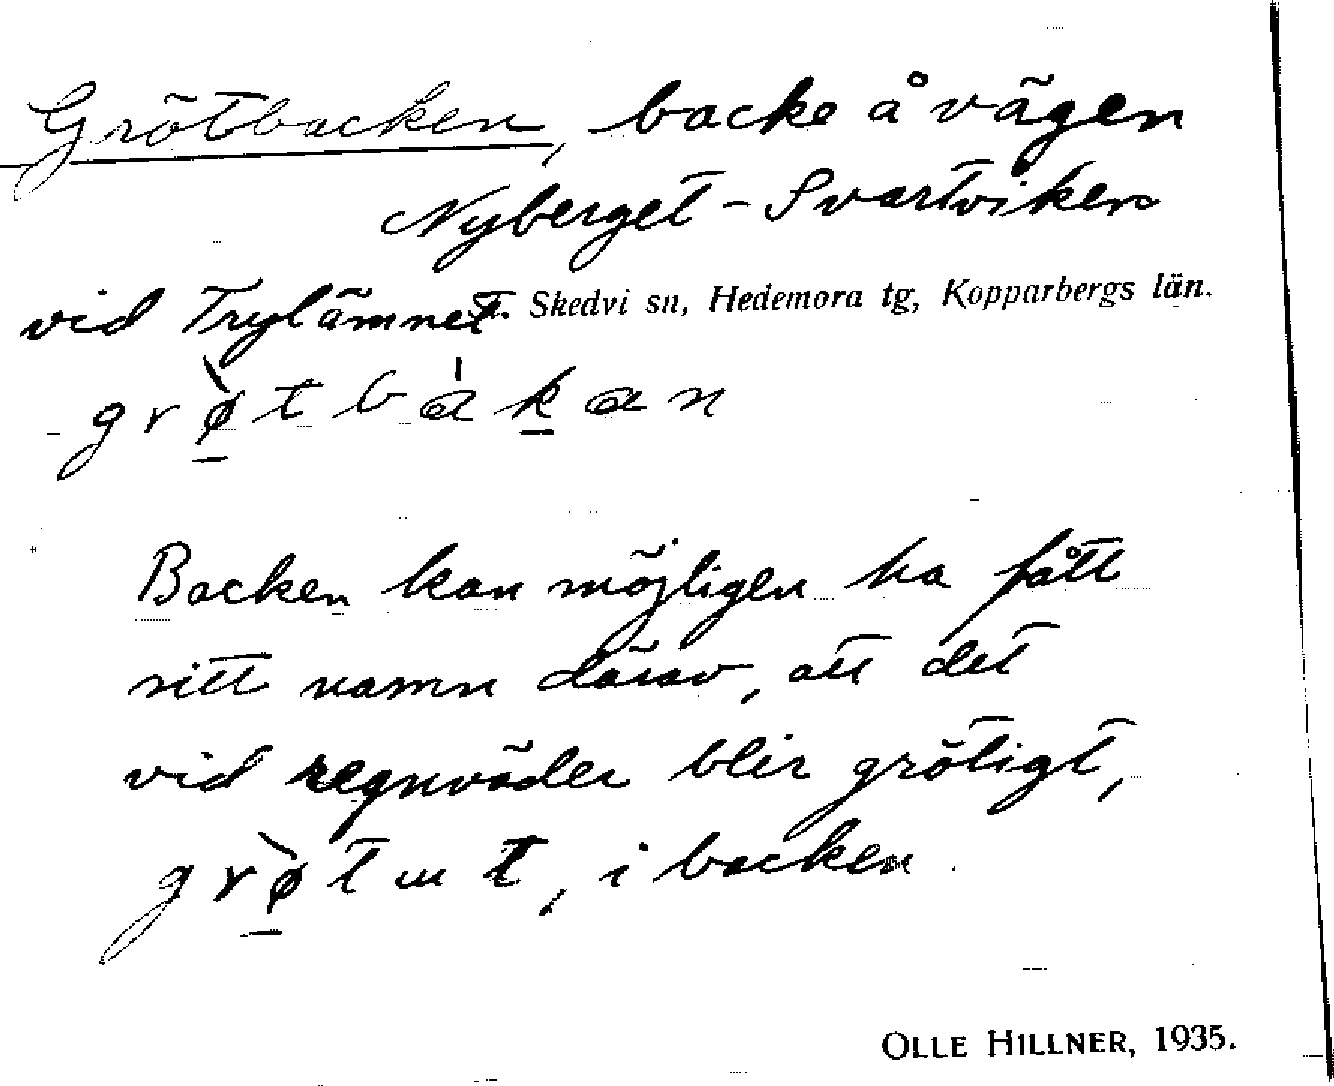 Grötbacken, backe å vägen
Nyberget - Svartviken
vid Trylämnet. Skedvi sn, Hedemora tg, Kopparbergs län.
grø̀tbákan
Backen kan möjligen ha fått
sitt namn därav, att det
vid regnväder blir grötigt,
grø̀tut, i backen
OLLE HILLNER, 1935.